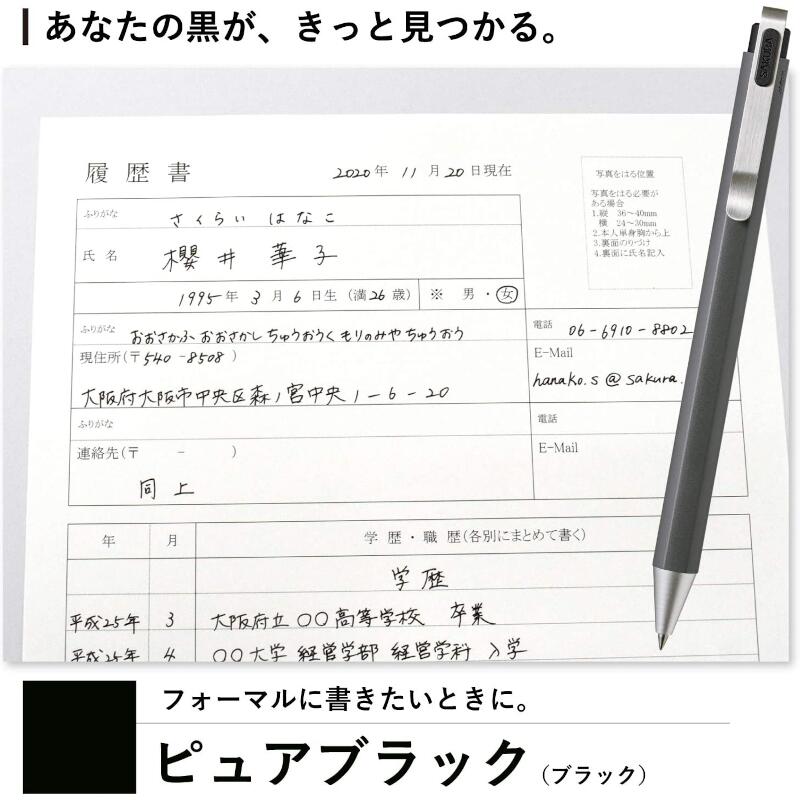 あなたの黒が、きっと見つかる。
SAKURA
履歴書
2020年 11月20日現在
写真をはる位置
写真をはる必要が
ある場合
1.縦 36～40mm
横 24～30mm
2.本人単身胸から上
3.裏面のりづけ
4.裏面に氏名記入
ふりがな さくらい はなこ
氏名 櫻井 華子
1995年 3月 6日生 (満26歳) ※ 男・女
ふりがな おおさかふ おおさかし ちゅうおうく もりのみや ちゅうおう
電話 06-6910-8802
現住所(〒540-8508)
E-Mail
hanako.s @ sakura.
大阪府大阪市中央区森ノ宮中央1-6-20
ふりがな
電話
連絡先(〒 - )
E-Mail
同上
年 月 学歴・職歴(各別にまとめて書く)
学歴
平成25年 3 大阪府立〇〇高等学校 卒業
平成25年 4 〇〇大学 経営学部 経営学科 入学
フォーマルに書きたいときに。
ピュアブラック(ブラック)